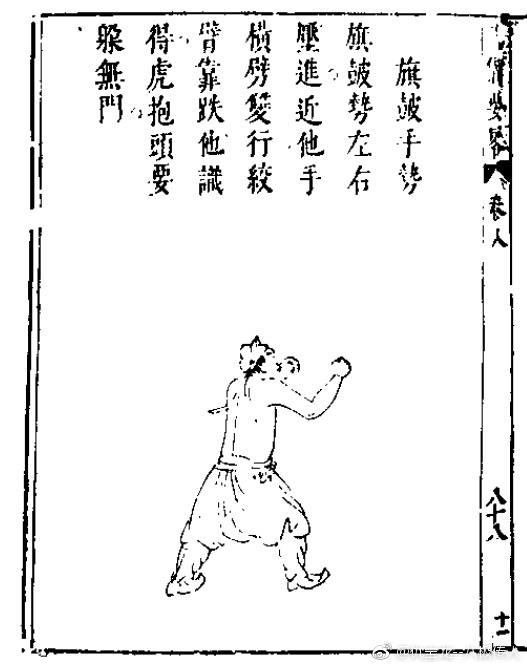 卷八
八十八
旗皷手勢
旗皷勢左右
壓進近他手
橫劈雙行絞
臂靠跌他識
得虎抱頭要
躲無門